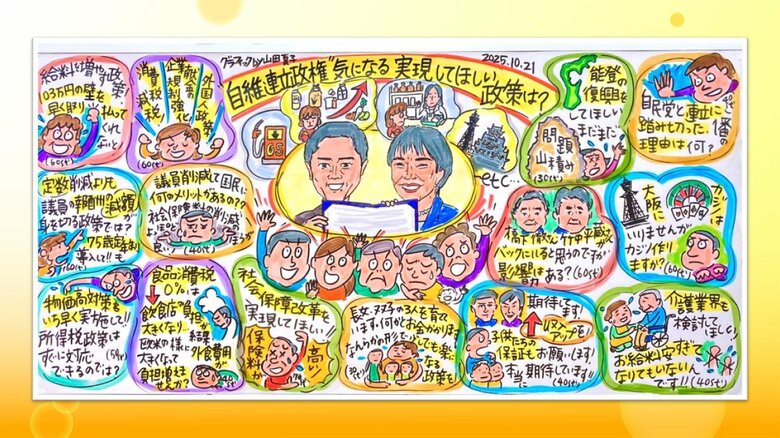 グラフィック by 山田夏子
2025.10.21
自維連立政権"気になる 実現してほしい
政策は?
etc…
給料を増やす政策
103万円の壁を
早く取り
払って
くれ
よっと
(60代)
消費減税
企業献金
規制強化
外国人政策
(60代)
能登の
復興を
してほしい
まだまだ
問題
山積み
(30代)
自民党と連立に
踏み切った一番の
理由は何?
定数削減よりも
議員の時間給?減額が
身を切る政策では?
75歳定年制
導入も!!
(60代)
議員削減で国民に
何のメリットがあるの??
社会保険料の削減の
よっぽど
ほうが
良い!
(40代)
橋下徹さん
竹中平蔵さんが
バックにいると思うのですが
影響は
ある?(60代)
カジノは
大阪に
いりませんが
カジノ作り
ますか?
(60代)
物価高対策を
いち早く実施して!!
所得税政策は
すぐに対応
できるのでは?
食品消費税
0%は
飲食店の負担が
大きくなり…
欧米の様に
結果
外食費用が
大きくなって
負担増ませんか?
社会保障改革を
実現してほしい!!
保険料が
高い
長女、双子の3人を育てて
います。何かとお金がかかります
なんらかの形で少しでも楽に
なる
政策を
期待してます!
収入アップを!
子供たちの
保証も
お願いします!
本当に
期待しています!!
(40代)
介護業界も
検討してほしい
お給料が安すぎて
なりてもいないん
です!!(40代)